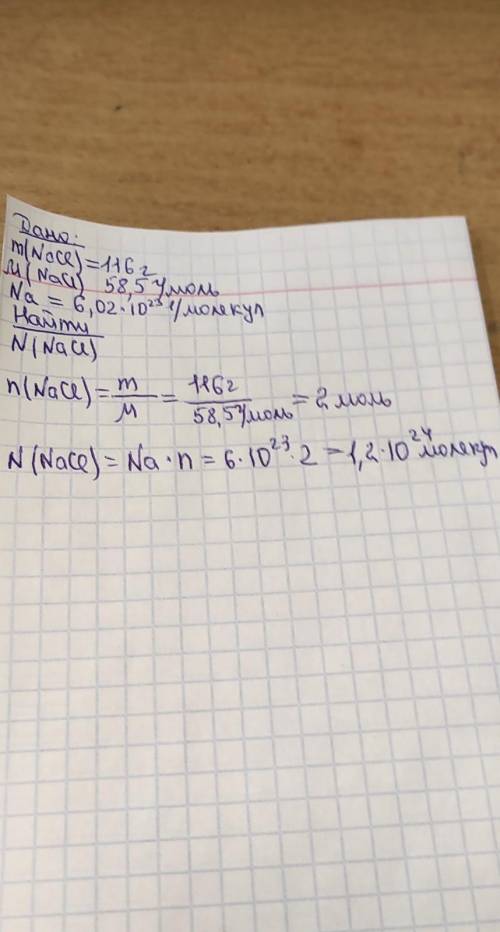 Дано:
m(NaCl)=116г
M(NaCl) 58,5г/моль
Na = 6,02·10²³ 1/молекул
Найти
N(NaCl)
n(NaCl)= m/M = 116г/58,5г/моль = 2 моль
N(NaCl)= Na·n = 6·10²³·2 = 1,2·10²⁴ молекул